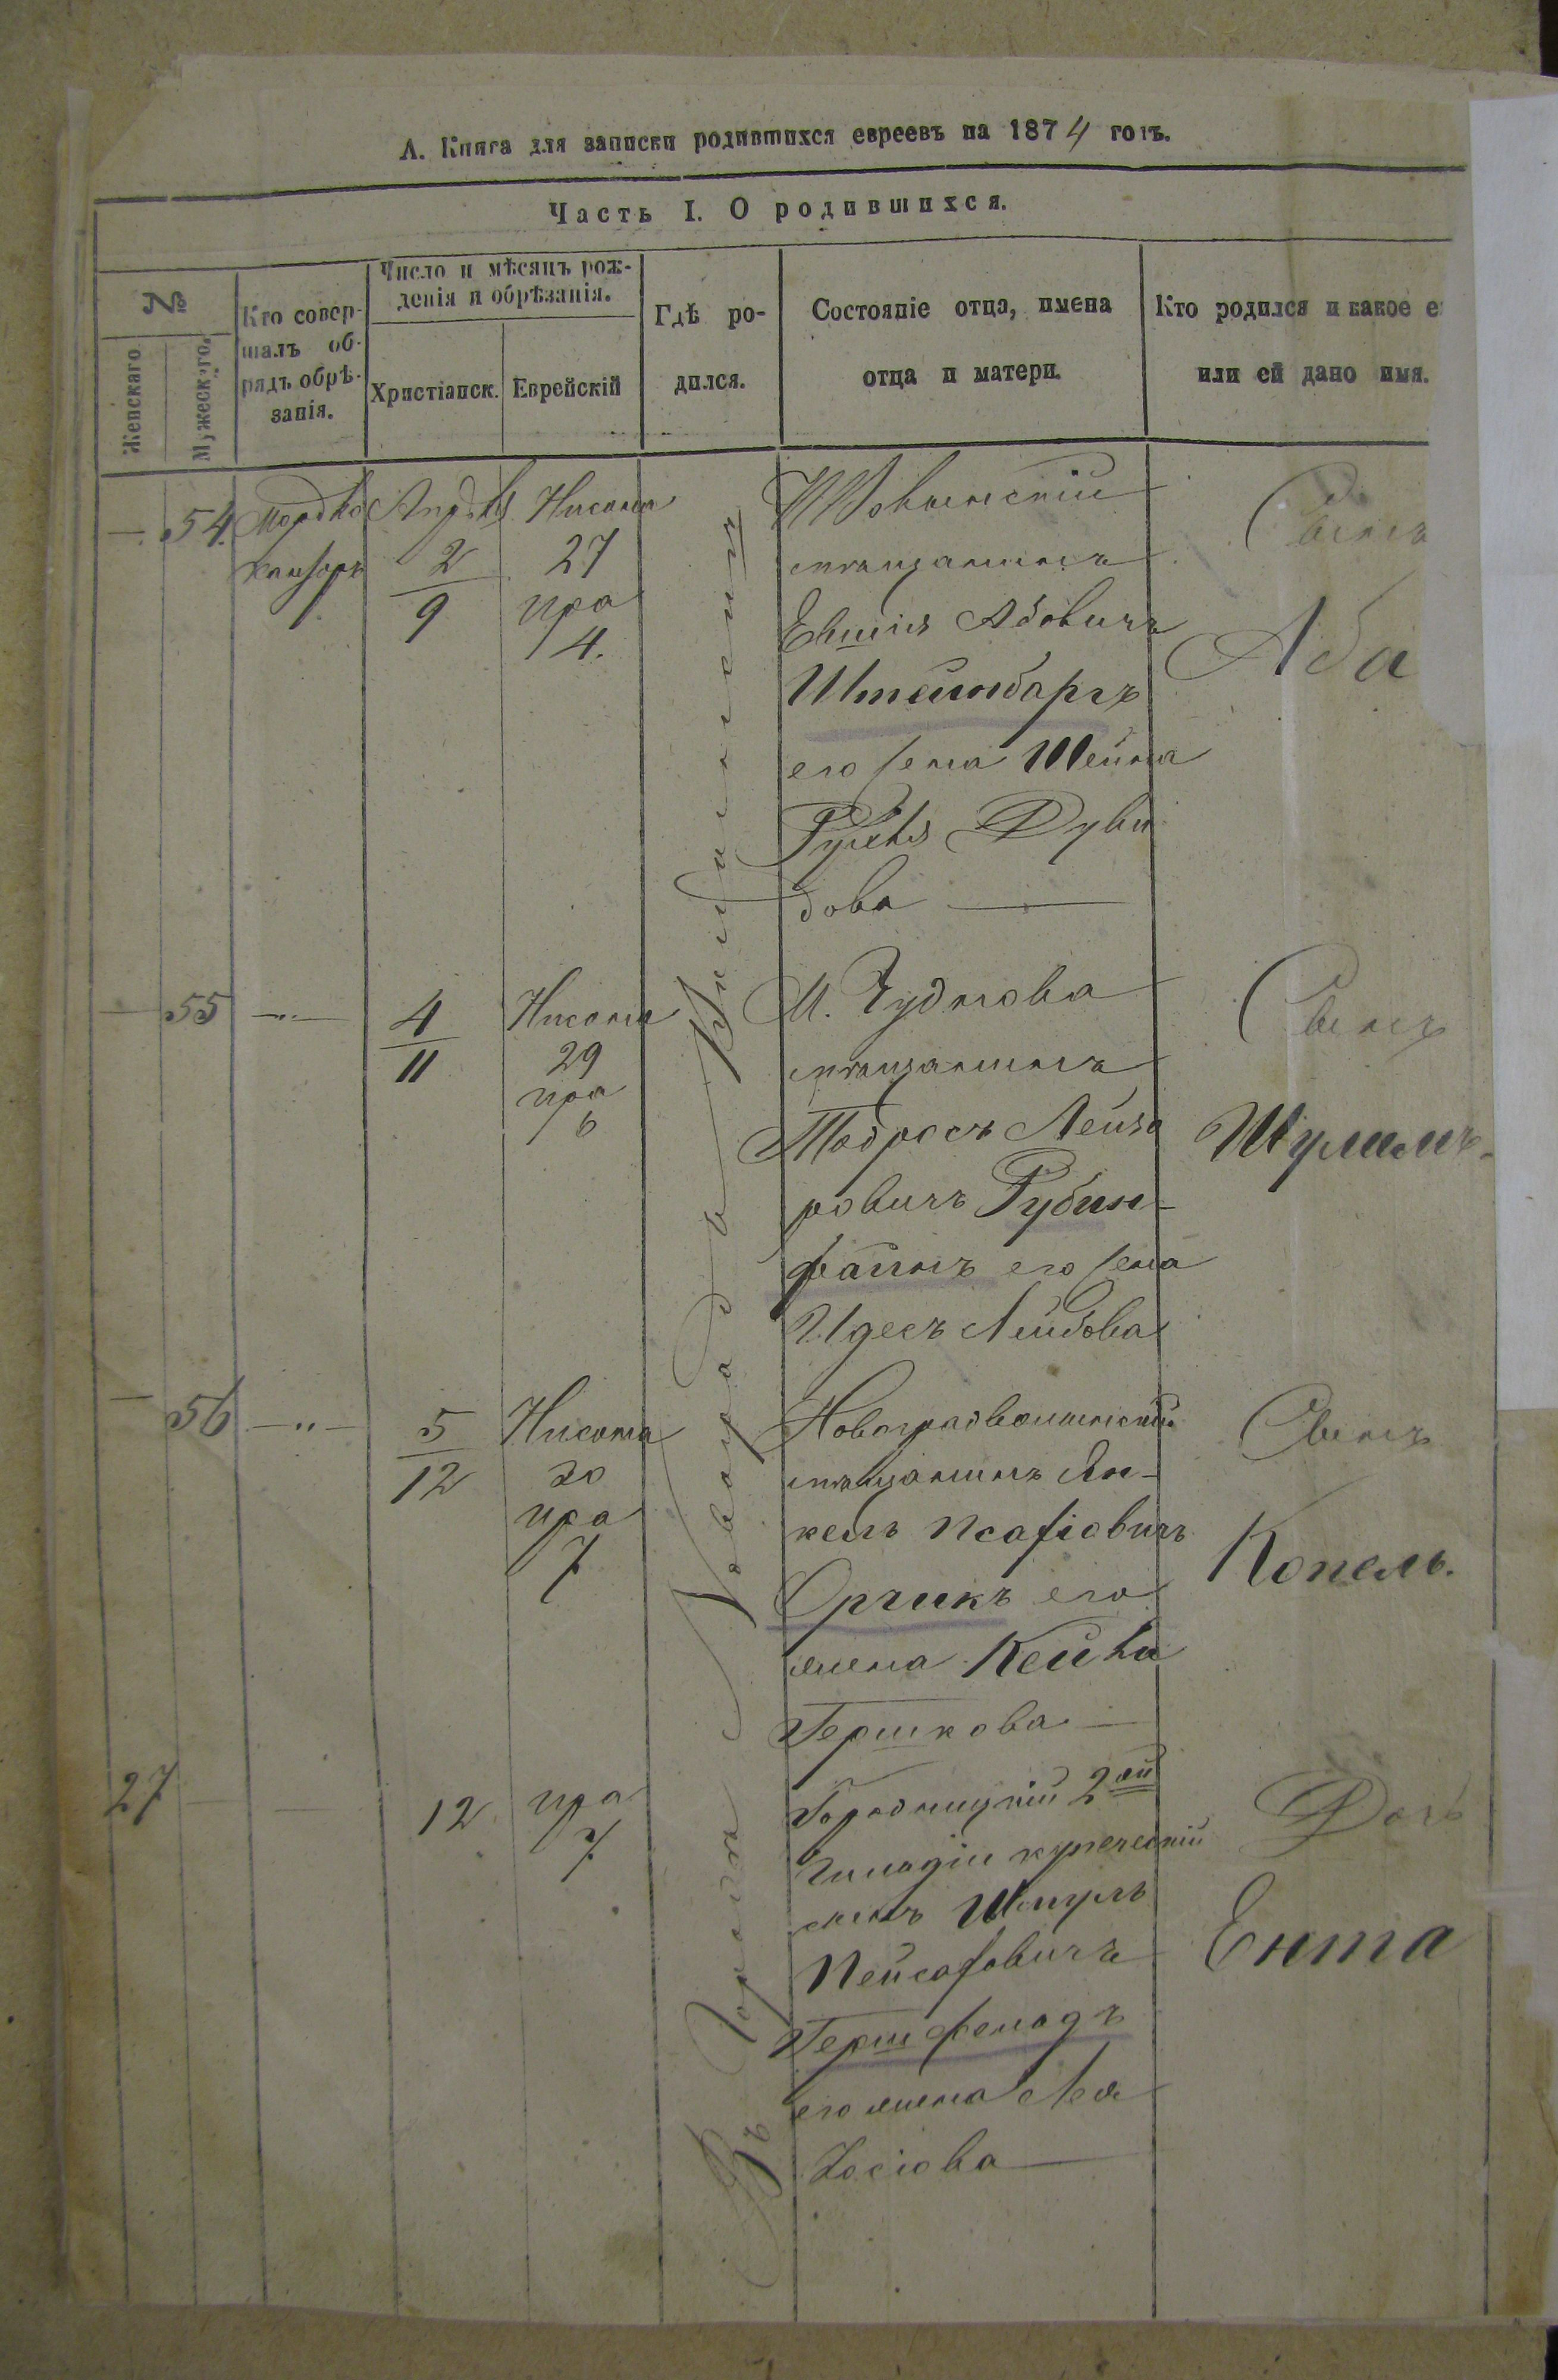 А. Книга для записки родившихся евреевъ на 1874 годъ.
Часть I. О родившихся.
№
Женскаго.
Мужескаго.
Кто совер-
шалъ об-
рядъ обрѣ-
занія.
Число и мѣсяцъ рож-
денія и обрѣзанія.
Христіанск.
Еврейскій
Гдѣ ро-
дился.
Состояніе отца, имена
отца и матери.
Кто родился и какое е
или ей дано имя.
Въ городѣ Новоградъ Волынскѣ
— 54.
Мордко
Апрѣль
2
9
Нисана
27
Іяра
4.
мѣщанинъ
Абовичъ
Штейнбаргъ
его жена Шейна
Рухль Дуви
дова —
Сынъ
Аба
— 55 —"—
4
11
Нисана
29
Іяра
6
М. Чуднова
мѣщанинъ
Тодросъ Лейзо
ровичъ Рубин-
файнъ его жена
Идесъ Лейбова
Сынъ
Шулимъ.
— 56 —"—
5
12
Нисана
30
Іяра
7
Новоградволынскій
мѣщанинъ Ян-
кель
Оргикъ его
жена Кейла
Гершкова —
Сынъ
Копель.
27 — —
12
Іяра
7.
Городницкій 2ой
Гильдіи купеческій
сынъ Шмуль
Пейсаховичъ
Гершфельдъ
его жена Лея
Іосіова —
Дочь
Ента